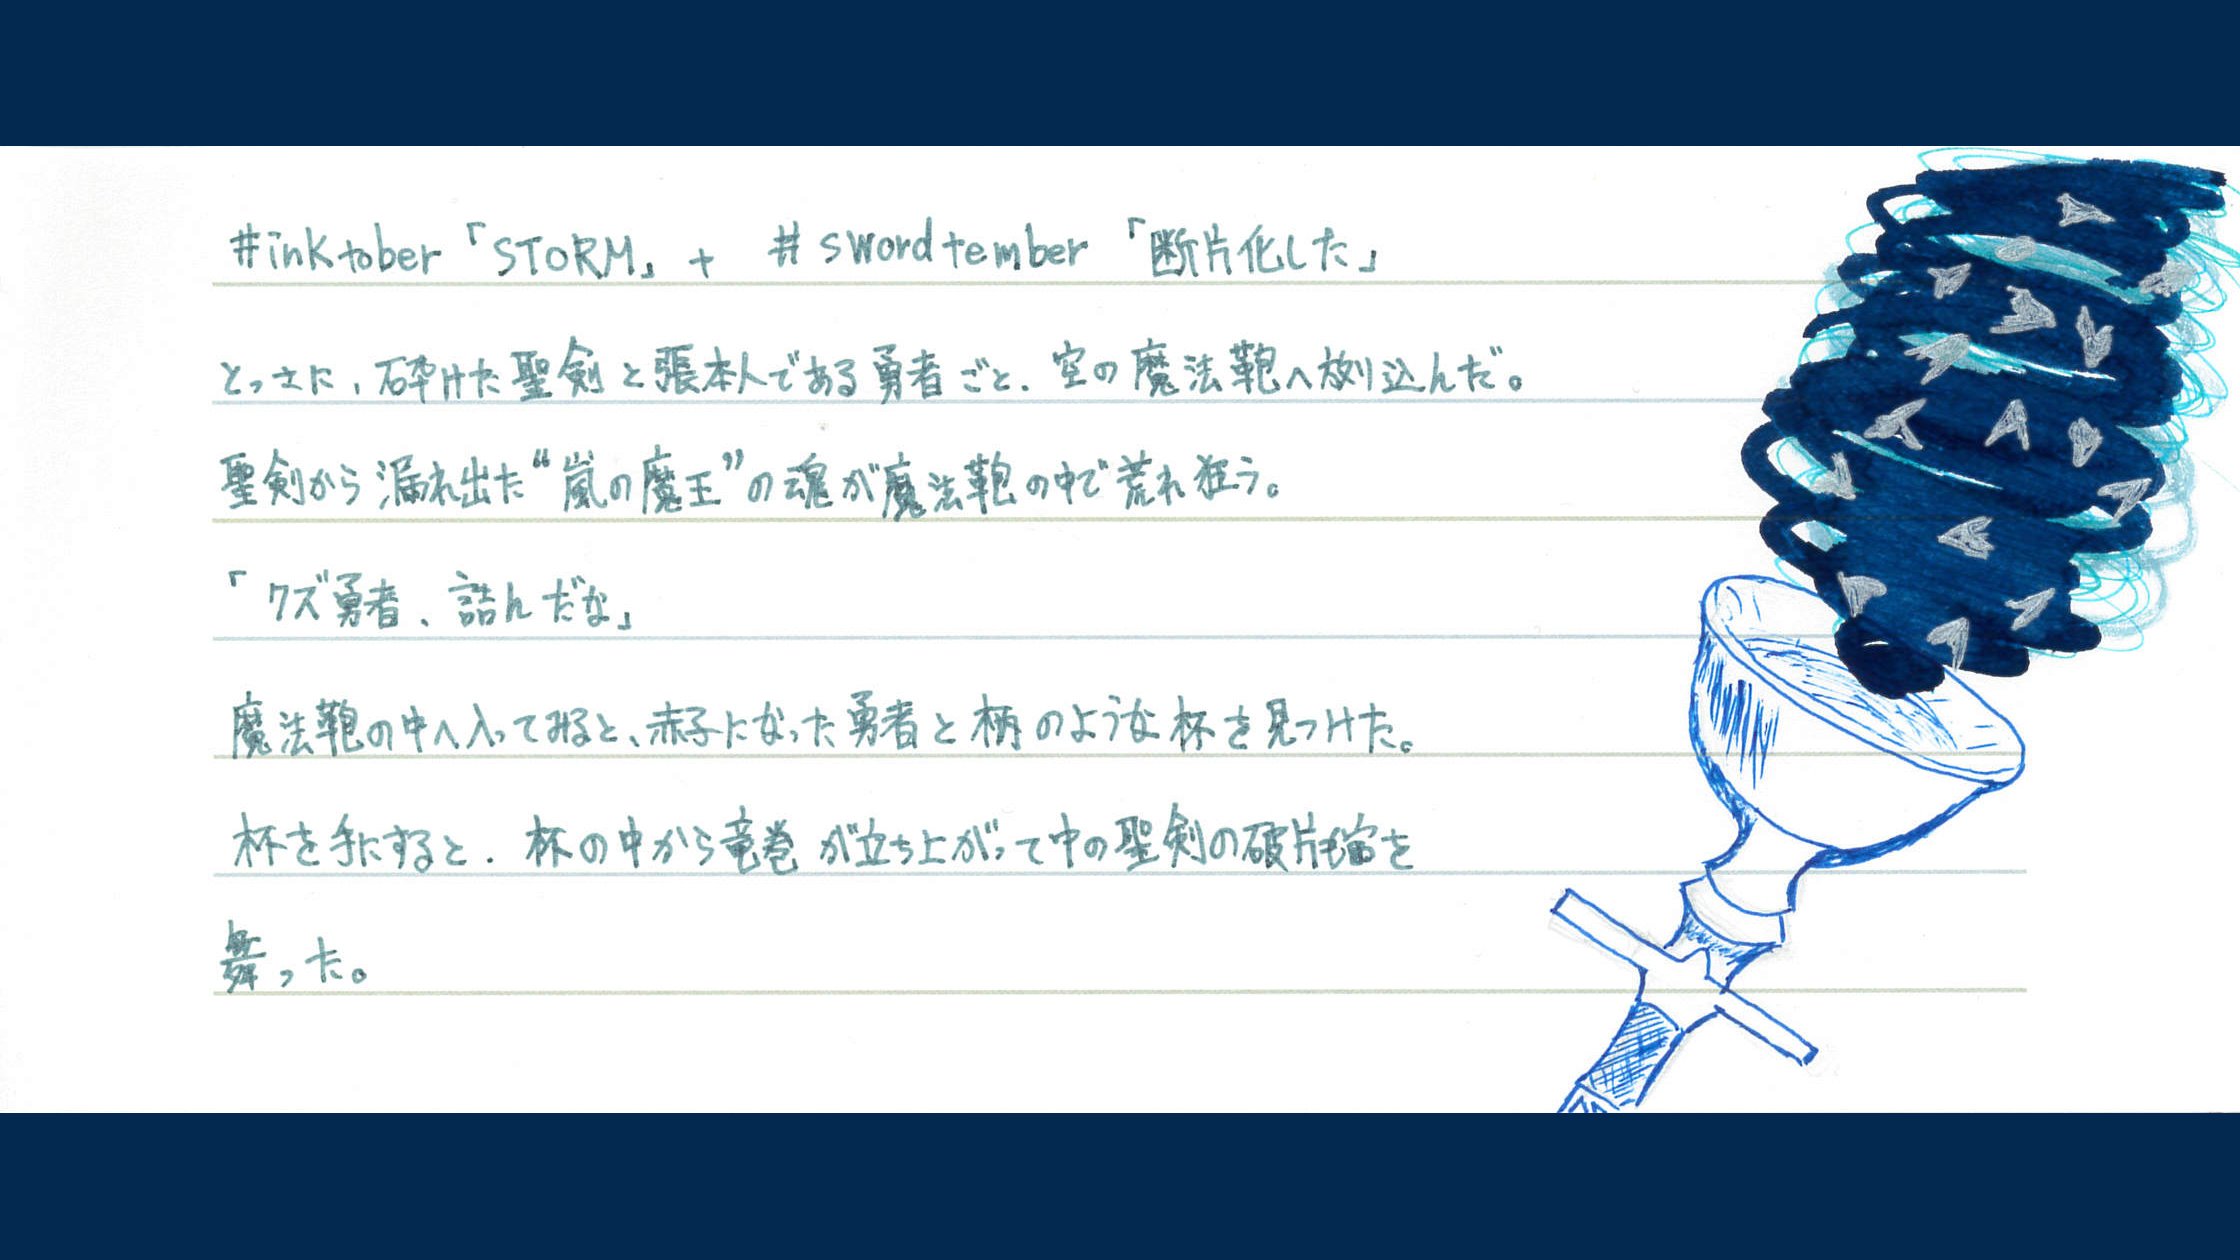 #inktober「STORM」+ #swordtember「断片化した」
とっさに、砕けた聖剣と張本人である勇者ごと、空の魔法鞄へ放り込んだ。
聖剣から漏れ出た“嵐の魔王”の魂が魔法鞄の中で荒れ狂う。
「クズ勇者、詰んだな」
魔法鞄の中へ入ってみると、赤子になった勇者と柄のような杯を見つけた。
杯を手にすると、杯の中から竜巻が立ち上がって中の聖剣の破片も宙を
舞った。